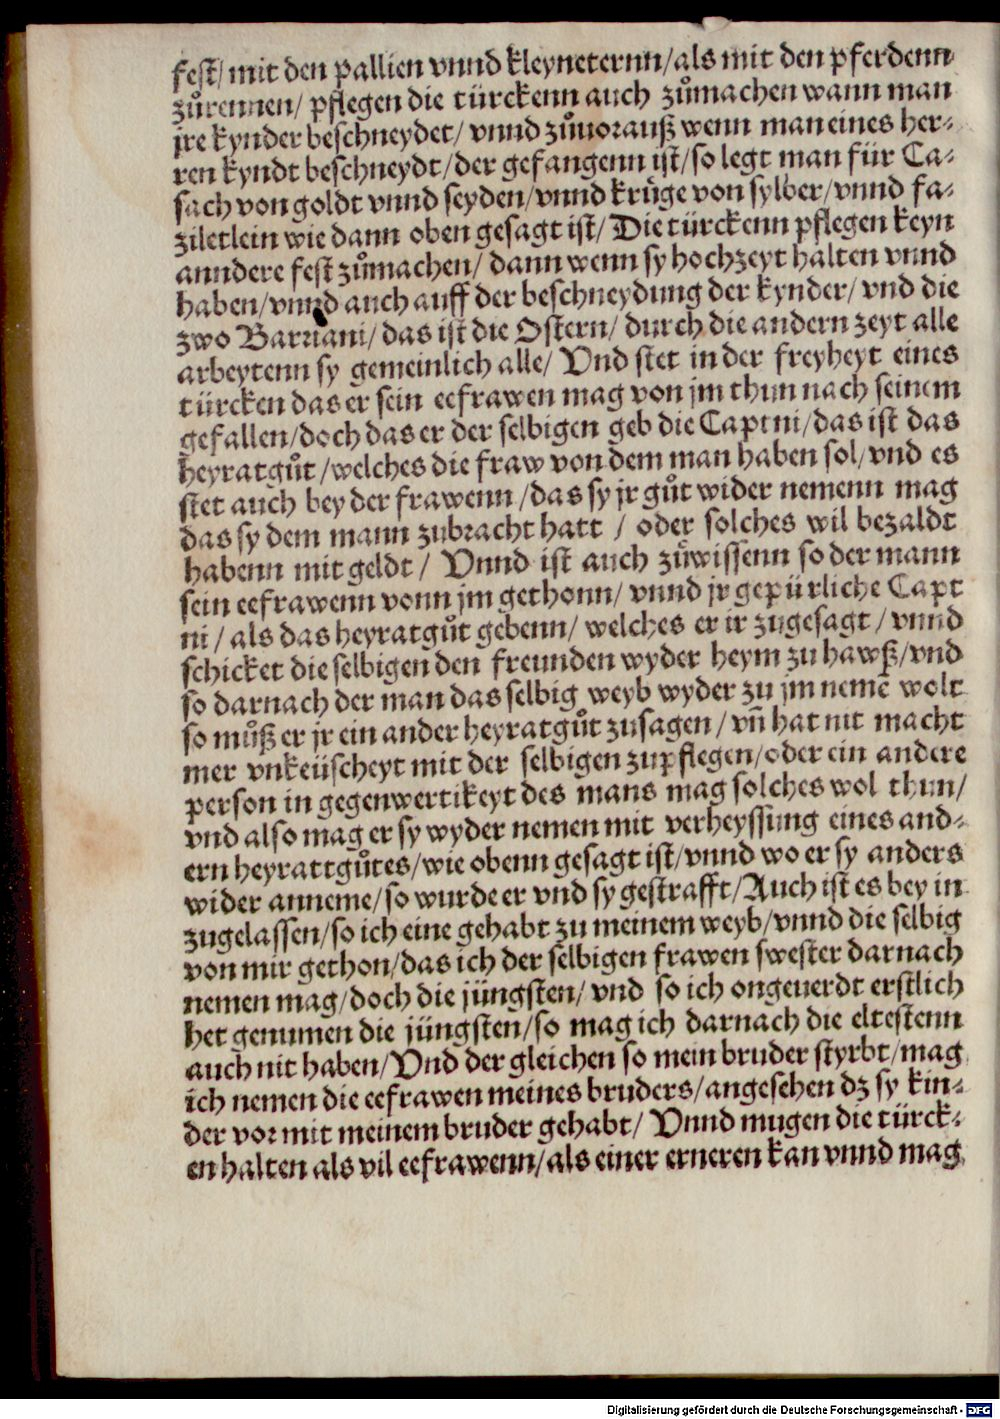 fest/ mit den pallien vnnd kleyneternn/als mit den pferdenn
zůrennen/ pflegen die türckenn auch zůmachen wann man
jre kynder beschneydet/ vnnd zůuorauß wenn man eines her-
ren kyndt beschneydt/der gefangenn ist/so legt man für Ca-
sach von goldt vnnd seyden/vnnd krůge von sylber/vnnd fa-
ziletlein wie dann oben gesagt ist/ Die türckenn pflegen keyn
anndere fest zůmachen/ dann wenn sy hochzeyt halten vnnd
haben/vnnd auch auff der beschneydung der kynder/ vnd die
zwo Barriani/das ist die Ostern/ durch die andern zeyt alle
arbeytenn sy gemeinlich alle/ Vnd stet in der freyheyt eines
türcken das er sein eefrawen mag von jm thun nach seinem
gefallen/doch das er der selbigen geb die Captni/das ist das
heyratgůt/welches die fraw von dem man haben sol/vnd es
stet auch bey der frawenn/das sy jr gůt wider nemenn mag
das sy dem mann zubracht hatt / oder solches wil bezaldt
habenn mit geldt/ Vnnd ist auch zůwissenn so der mann
sein eefrawenn vonn jm gethonn/ vnnd jr gepürliche Capt
ni/ als das heyratgůt gebenn/ welches er ir zugesagt/ vnnd
schicket die selbigen den freunden wyder heym zu hawß/vnd
so darnach der man das selbig weyb wyder zu jm nemē wolt
so můß er jr ein ander heyratgůt zusagen/ vñ hat nit macht
mer vnkeüscheyt mit der selbigen zupflegen/oder ein andere
person in gegenwertikeyt des mans mag solches wol thun/
vnd also mag er sy wyder nemen mit verheyssung eines and-
ern heyrattgůtes/wie obenn gesagt ist/vnnd wo er sy anders
wider anneme/so wurde er vnd sy gestrafft/Auch ist es bey in
zugelassen/so ich eine gehabt zu meinem weyb/vnnd die selbig
von mir gethon/das ich der selbigen frawen swester darnach
nemen mag/doch die jüngsten/ vnd so ich ongeuerdt erstlich
het genumen die jüngsten/so mag ich darnach die eltestenn
auch nit haben/Vnd der gleichen so mein bruder styrbt/mag
ich nemen die eefrawen meines bruders/angesehen dz sy kin-
der vor mit meinem bruder gehabt/ Vnnd mugen die türck-
en halten als vil eefrawenn/als einer erneren kan vnnd mag
Digitalisierung gefördert durch die Deutsche Forschungsgemeinschaft - DFG